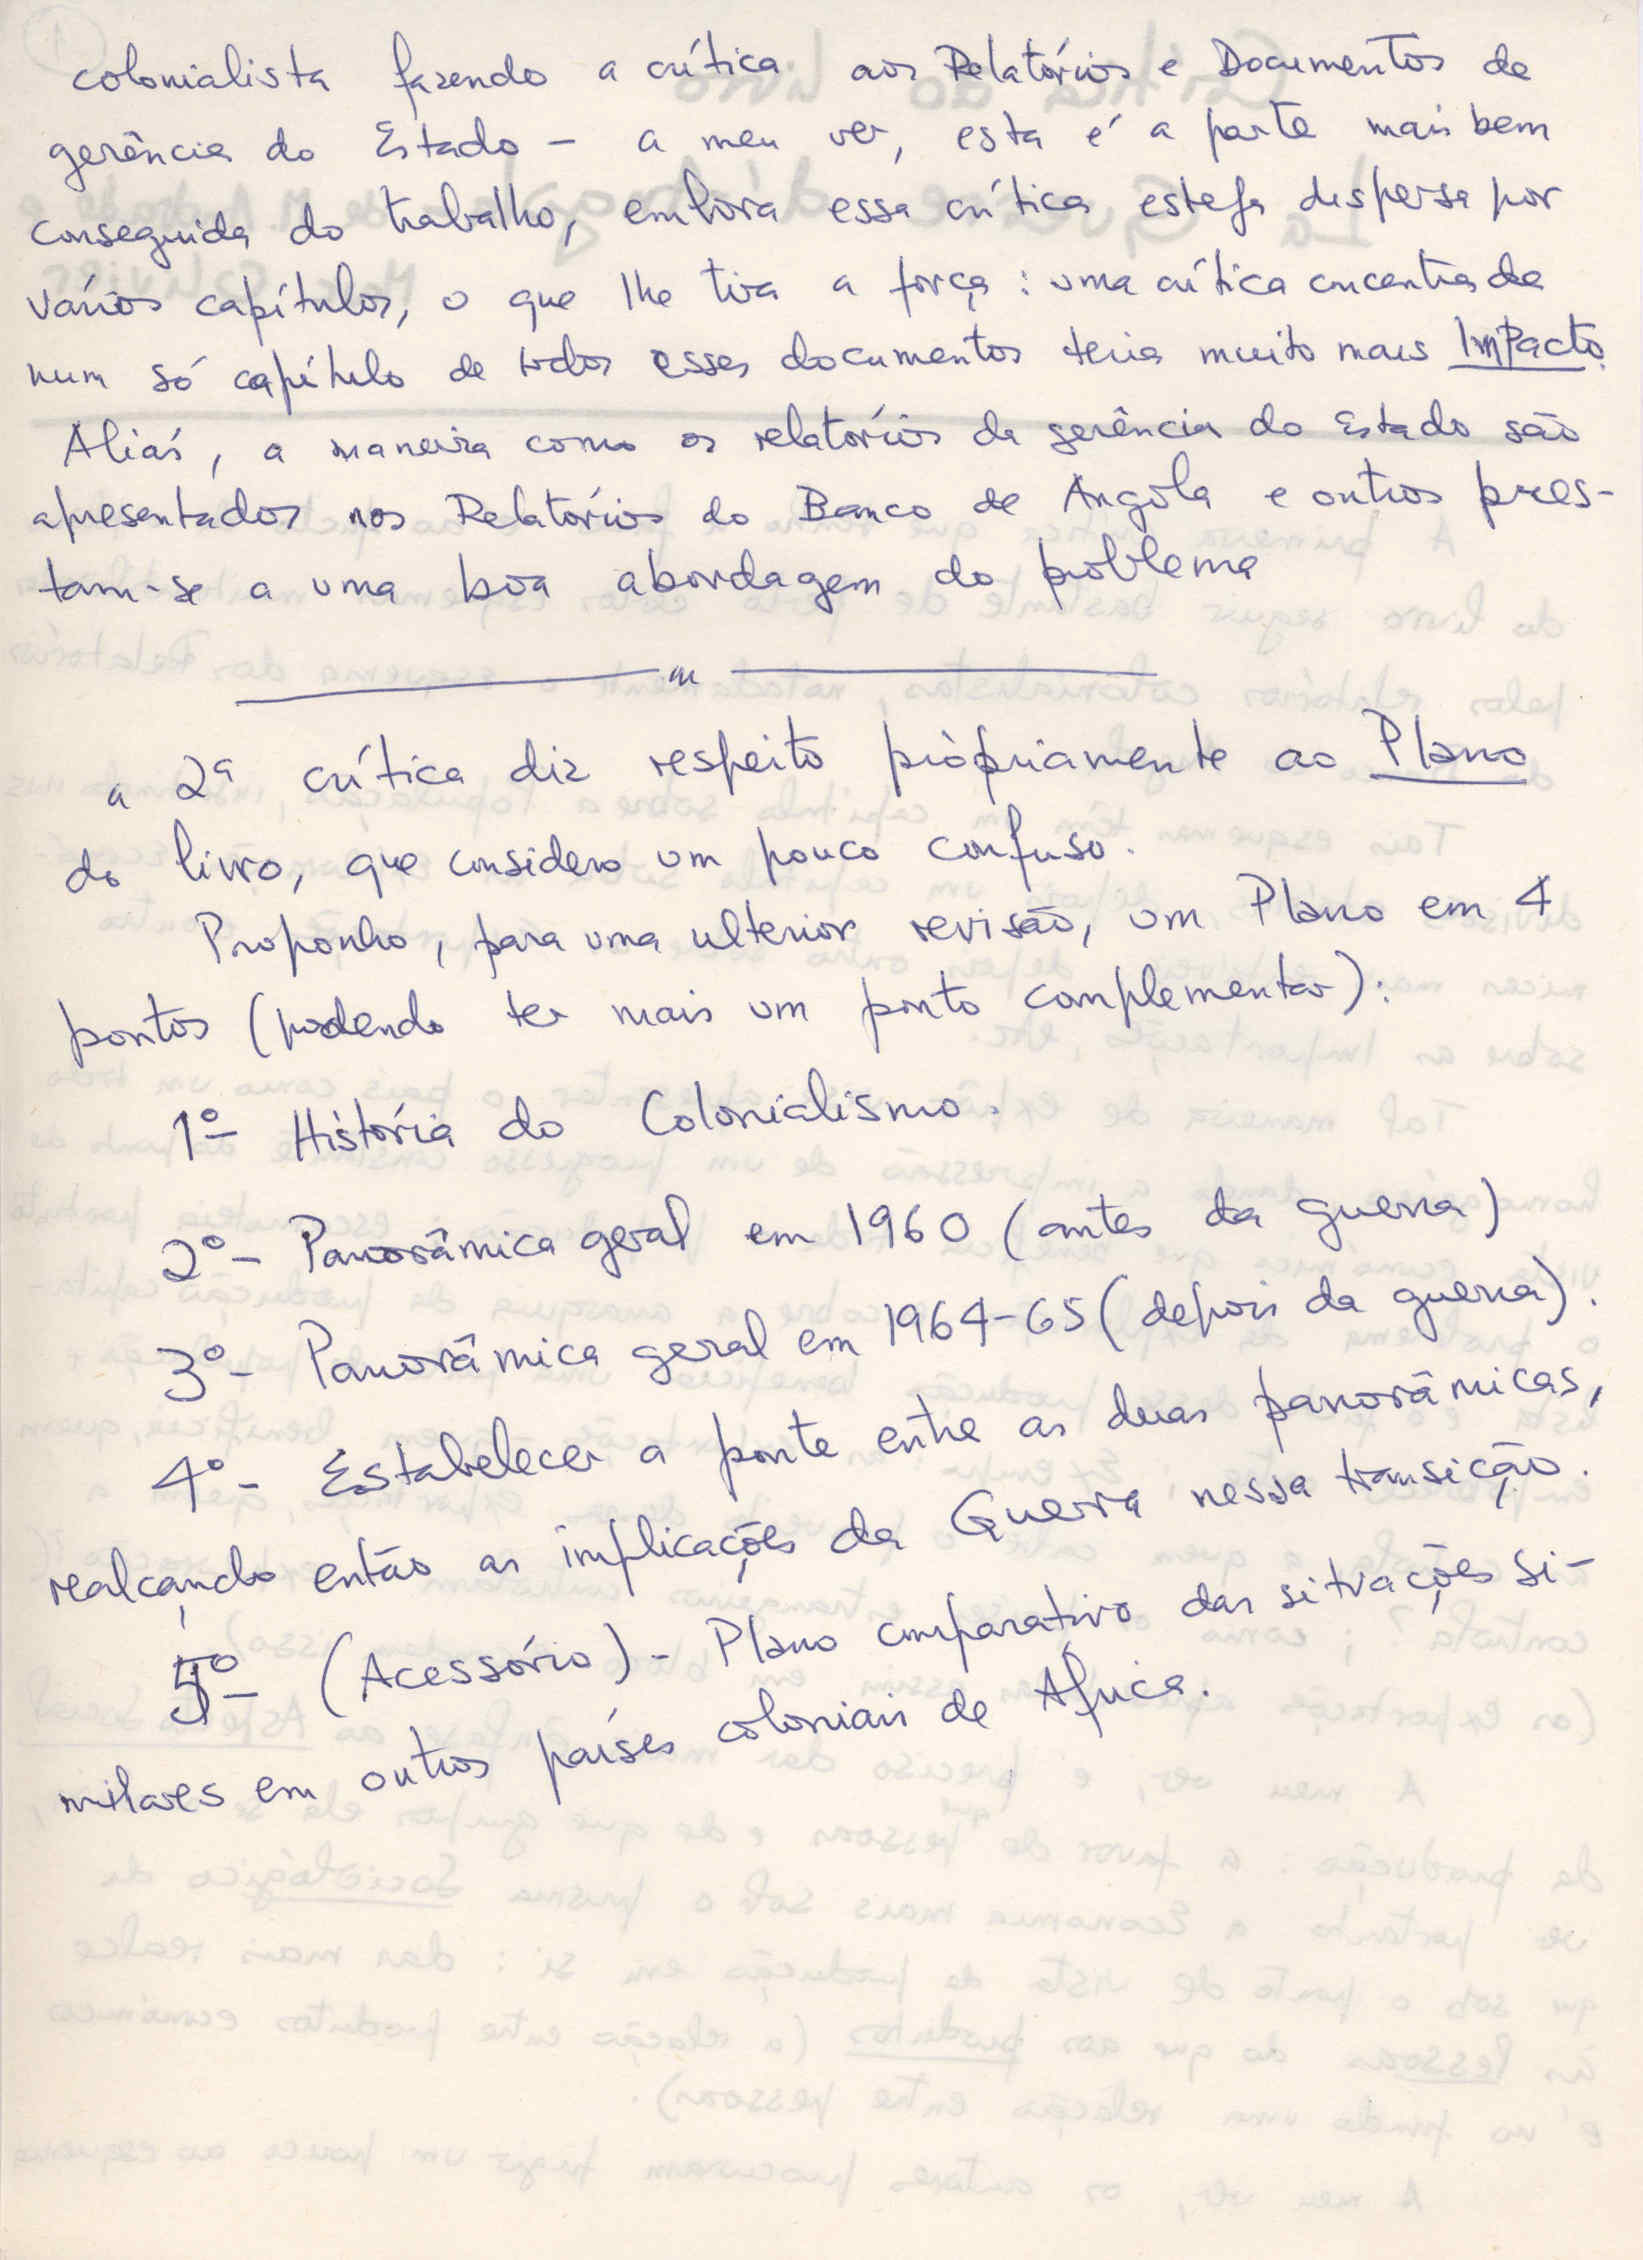 colonialista fazendo a crítica aos Relatórios e Documentos de
gerência do Estado – a meu ver, esta é a parte mais bem
conseguida do trabalho, embora essa crítica esteja dispersa por
vários capítulos, o que lhe tira a força: uma crítica concentrada
num só capítulo de todos esses documentos teria muito mais Impacto.
Aliás, a maneira como os relatórios da gerência do Estado são
apresentados nos Relatórios do Banco de Angola e outros pres-
tam-se a uma boa abordagem do problema
a 2ª crítica diz respeito pròpriamente ao Plano
do livro, que considero um pouco confuso.
Proponho, para uma ulterior revisão, um Plano em 4
pontos (podendo ter mais um ponto complementar):
1º- História do Colonialismo.
2º- Panorâmica geral em 1960 (antes da guerra)
3º- Panorâmica geral em 1964-65 (depois da guerra).
4º- Estabelecer a ponte entre as duas panorâmicas,
realçando então as implicações da Guerra nessa transição.
5º- (Acessório) - Plano comparativo das situações si-
milares em outros países coloniais de África.